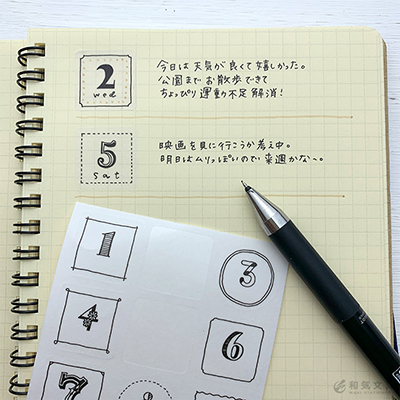 2
wed
今日は天気が良くて嬉しかった。
公園までお散歩できて
ちょっぴり運動不足解消!
5
sat
映画を見に行こうか考え中。
明日はムリっぽいので来週かな〜。
1
3
4
6
7
和気文